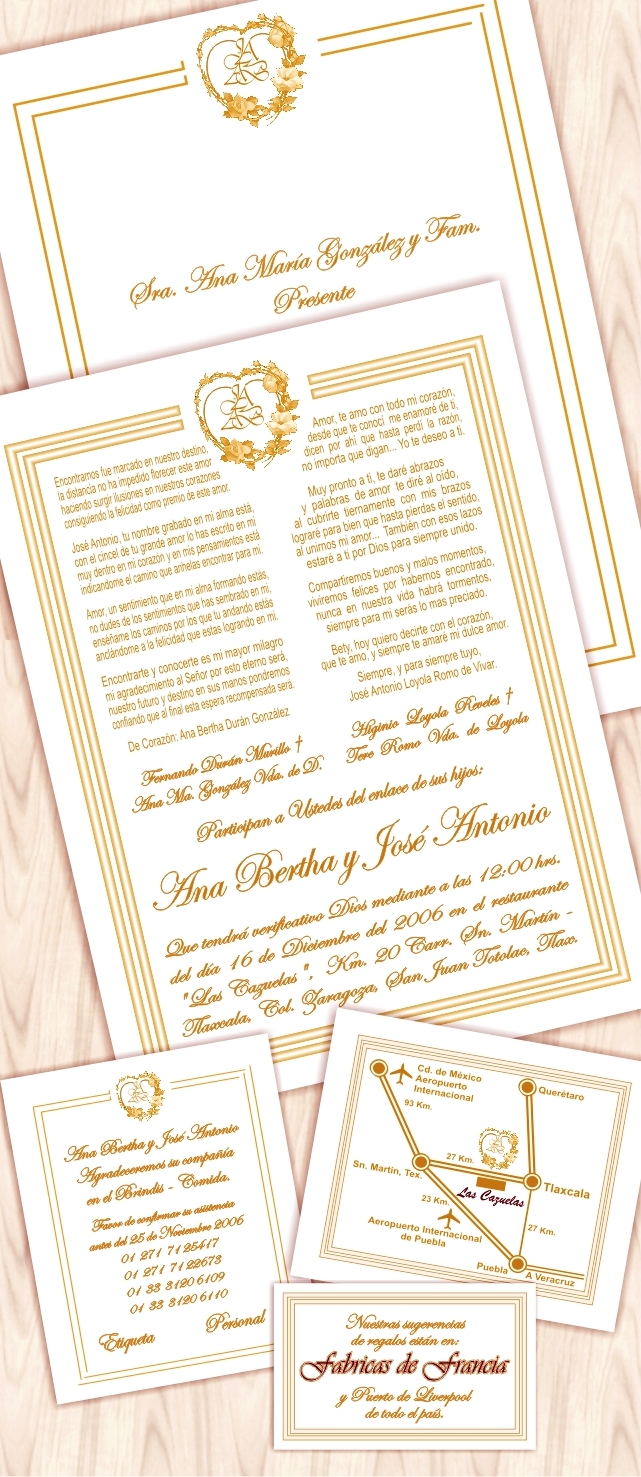 Sra. Ana María González y Fam.
Presente
Encontrarnos fue marcado en nuestro destino,
la distancia no ha impedido florecer este amor
haciendo surgir ilusiones en nuestros corazones
consiguiendo la felicidad como premio de este amor.
José Antonio, tu nombre grabado en mi alma está,
con el cincel de tu grande amor lo has escrito en mi
muy dentro en mi corazón y en mis pensamientos está
indicandome el camino que anhelas encontrar para mi.
Amor, un sentimiento que en mi alma formando estás,
no dudes de los sentimientos que has sembrado en mi,
enséñame los caminos por los que tu andando estás
anclándome a la felicidad que estas logrando en mi.
Encontrarte y conocerte es mi mayor milagro
mi agradecimiento al Señor por esto eterno será,
nuestro futuro y destino en sus manos pondremos
confiando que al final esta espera recompensada será.
De Corazón: Ana Bertha Durán González
Amor, te amo con todo mi corazón,
desde que te conocí me enamoré de ti,
dicen por ahí que hasta perdí la razón,
no importa que digan... Yo te deseo a ti.
Muy pronto a ti, te daré abrazos
y palabras de amor te diré al oído,
al cubrirte tiernamente con mis brazos
lograré para bien que hasta pierdas el sentido,
al unirnos mi amor... También con esos lazos
estaré a ti por Dios para siempre unido.
Compartiremos buenos y malos momentos,
viviremos felices por habernos encontrado,
nunca en nuestra vida habrá tormentos,
siempre para mi serás lo mas preciado.
Bety, hoy quiero decirte con el corazón,
que te amo, y siempre te amaré mi dulce amor.
Siempre, y para siempre tuyo,
José Antonio Loyola Romo de Vivar.
Fernando Durán Murillo †
Ana Ma. González Vda. de D.
Higinio Loyola Reveles †
Tere Romo Vda. de Loyola
Participan a Ustedes del enlace de sus hijos:
Ana Bertha y José Antonio
Que tendrá verificativo Dios mediante a las 12:00 hrs.
del día 16 de Diciembre del 2006 en el restaurante
"Las Cazuelas", Km. 20 Carr. Sn. Martín -
Tlaxcala, Col. Zaragoza, San Juan Totolac, Tlax.
Ana Bertha y José Antonio
Agradeceremos su compañía
en el Brindis - Comida.
Favor de confirmar su asistencia
antes del 25 de Noviembre 2006
01 271 7125417
01 271 7122673
01 33 31206109
01 33 31206110
Etiqueta
Personal
Cd. de México
Aeropuerto
Internacional
93 Km.
Querétaro
27 Km.
Sn. Martín, Tex.
Las Cazuelas
Tlaxcala
23 Km.
Aeropuerto Internacional
de Puebla
27 Km.
Puebla
A Veracruz
Nuestras sugerencias
de regalos están en:
Fabricas de Francia
y Puerto de Liverpool
de todo el país.